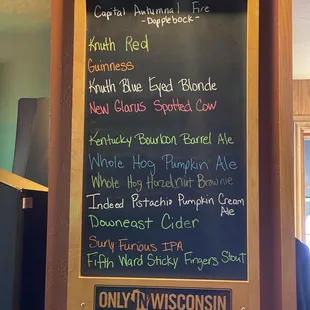 Capital Autumnal Fire
- Dopplebock -
Knuth Red
Guinness
Knuth Blue Eyed Blonde
New Glarus Spotted Cow
Kentucky Bourbon Barrel Ale
Whole Hog Pumpkin Ale
Whole Hog Hazelnut Brownie
Indeed Pistachio Pumpkin Cream
Ale
Downeast Cider
Surly Furious IPA
Fifth Ward Sticky Fingers Stout
ONLY IN WISCONSIN